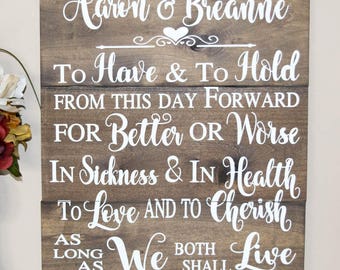 Aaron & Breanne
To Have & To Hold
FROM THIS DAY FORWARD
FOR Better OR Worse
In Sickness & In Health
To Love AND TO Cherish
AS LONG AS We BOTH SHALL Live